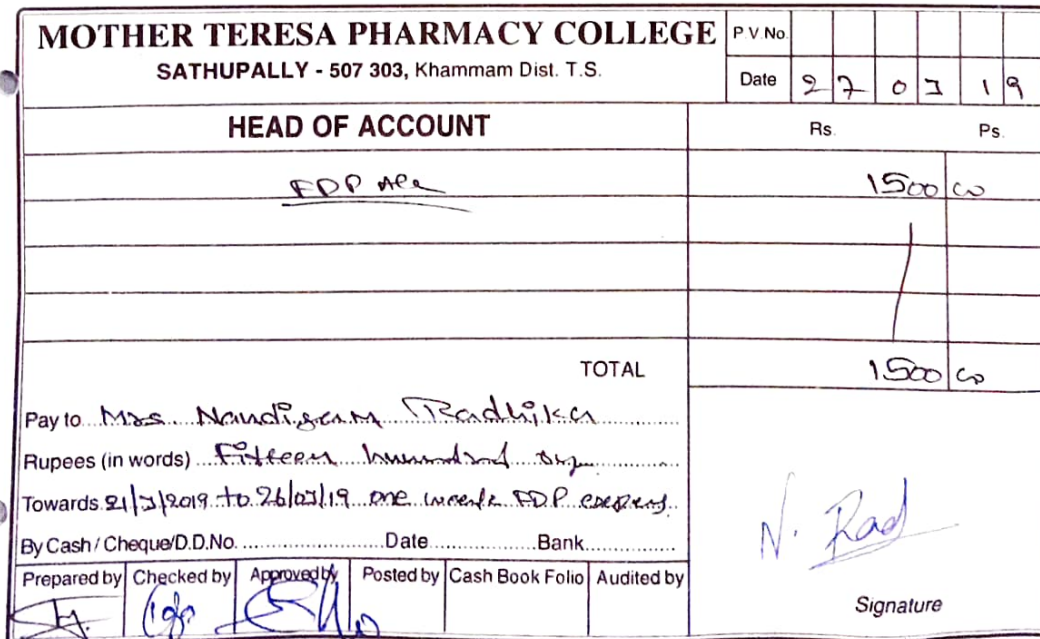 MOTHER TERESA PHARMACY COLLEGE
SATHUPALLY - 507 303, Khammam Dist. T.S.
P.V.No.
Date 27 03 19
HEAD OF ACCOUNT Rs. Ps.
FDP A/c 1500 00
TOTAL 1500 00
Pay to Mrs. Nandigam Radhika
Rupees (in words) Fifteen hundred only
Towards 21/3/2019 to 26/03/19 one week FDP
By Cash / Cheque/D.D.No. Date Bank
Prepared by Checked by Approved by Posted by Cash Book Folio Audited by
N. Rad
Signature